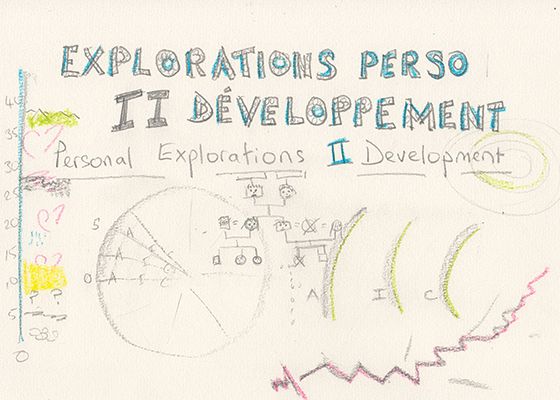 EXPLORATIONS PERSO
II DÉVELOPPEMENT
Personal Explorations II Development
40
35
30
25
20
15
10
5
0
S
A
A
O A S C
A I C
? ?